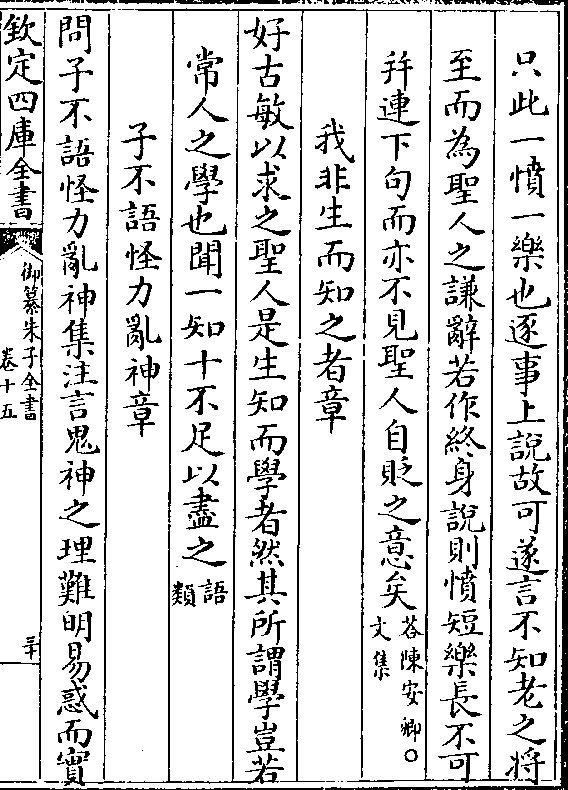 只此一憤一樂也逐事上說故可遂言不知老之將
至而為聖人之謙辭若作終身說則憤短樂長不可
幷連下句而亦不見聖人自貶之意矣答陳安卿○文集
我非生而知之者章
好古敏以求之聖人是生知而學者然其所謂學豈若
常人之學也聞一知十不足以盡之語類
子不語怪力亂神章
問子不語怪力亂神集注言鬼神之理難明易惑而實
欽定四庫全書
御纂朱子全書
卷十五
三十